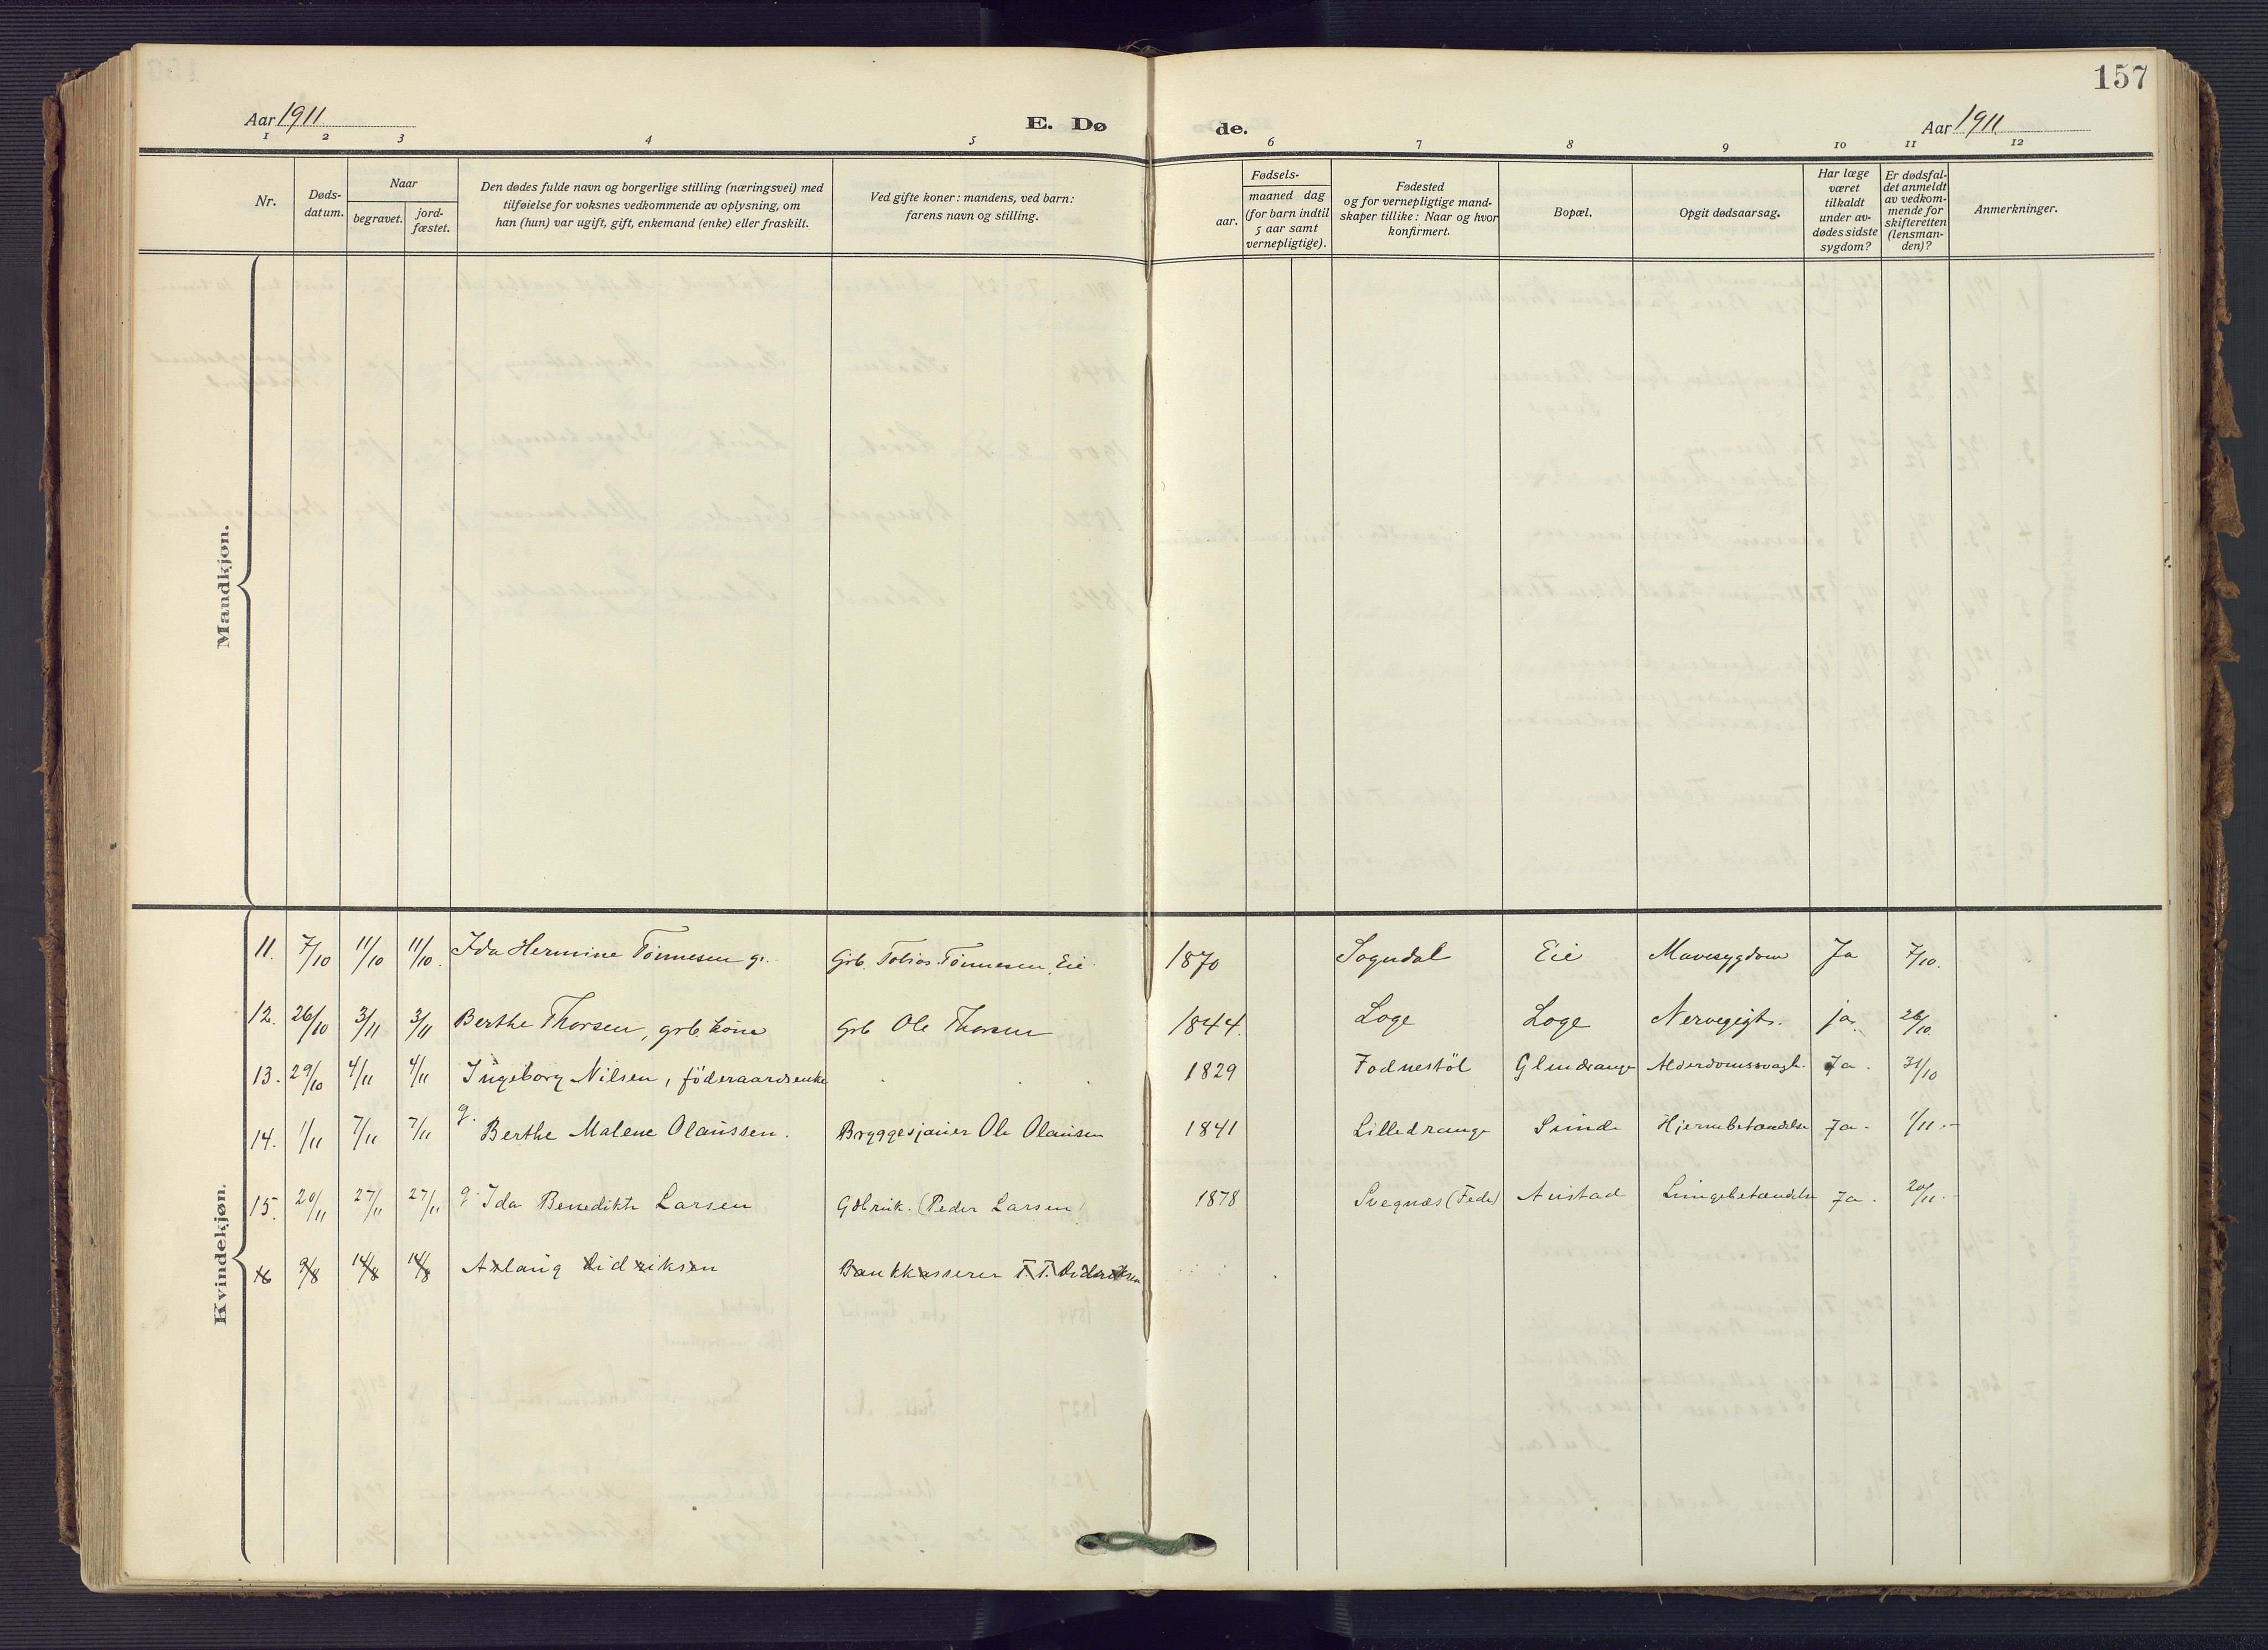 157
Aar 1911
E. Dø
de.
Aar 1911
1 2 3 4 5 6 7 8 9 10 11 12
Nr.
Døds-
datum.
Naar
begravet.
jord-
fæstet.
Den dødes fulde navn og borgerlige stilling (næringsvei) med
tilføielse for voksnes vedkommende av oplysning, om
han (hun) var ugift, gift, enkemand (enke) eller fraskilt.
Ved gifte koner: mandens, ved barn:
farens navn og stilling.
Fødsels-
aar.
maaned dag
(for barn indtil
5 aar samt
vernepligtige).
Fødested
og for vernepligtige mand-
skaper tillike: Naar og hvor
konfirmert.
Bopæl.
Opgit dødsaarsag.
Har læge
været
tilkaldt
under av-
dødes sidste
sygdom?
Er dødsfal-
det anmeldt
av vedkom-
mende for
skifteretten
(lensman-
den)?
Anmerkninger.
Mandkjøn.
Kvindekjøn.
11. 7/10 11/10 11/10. Ida Hermine Tönnesen g. Grb. Tobias Tönnesen, Eie 1870 Sogndal Eie Mavesygdom Ja 7/10.
12. 26/10 3/11 3/11 Berthe Thorsen, grb. kone Grb Ole Thorsen 1844. Loge Loge Nervegigt. ja. 26/10.
13. 29/10 4/11 4/11 Ingeborg Nilsen, föderaadsenke 1829 Fodnestöl Glendrange Alderdomssvagh. Ja. 31/10
14. 1/11 7/11 7/11 g. Berthe Malene Olaussen. Bryggesjauer Ole Olaussen 1841 Lilledrange Sunde Hjernebetændelse Ja. 1/11.
15. 20/11 27/11 27/11 g. Ida Benedikte Larsen Gbrük. (Peder Larsen) 1878 Svegnæs (Fede) Austad Lungebetændelse Ja. 20/11.
16 9/8 14/8 14/8 Aslaug Didriksen Bankkasserer T. T. Didriksen